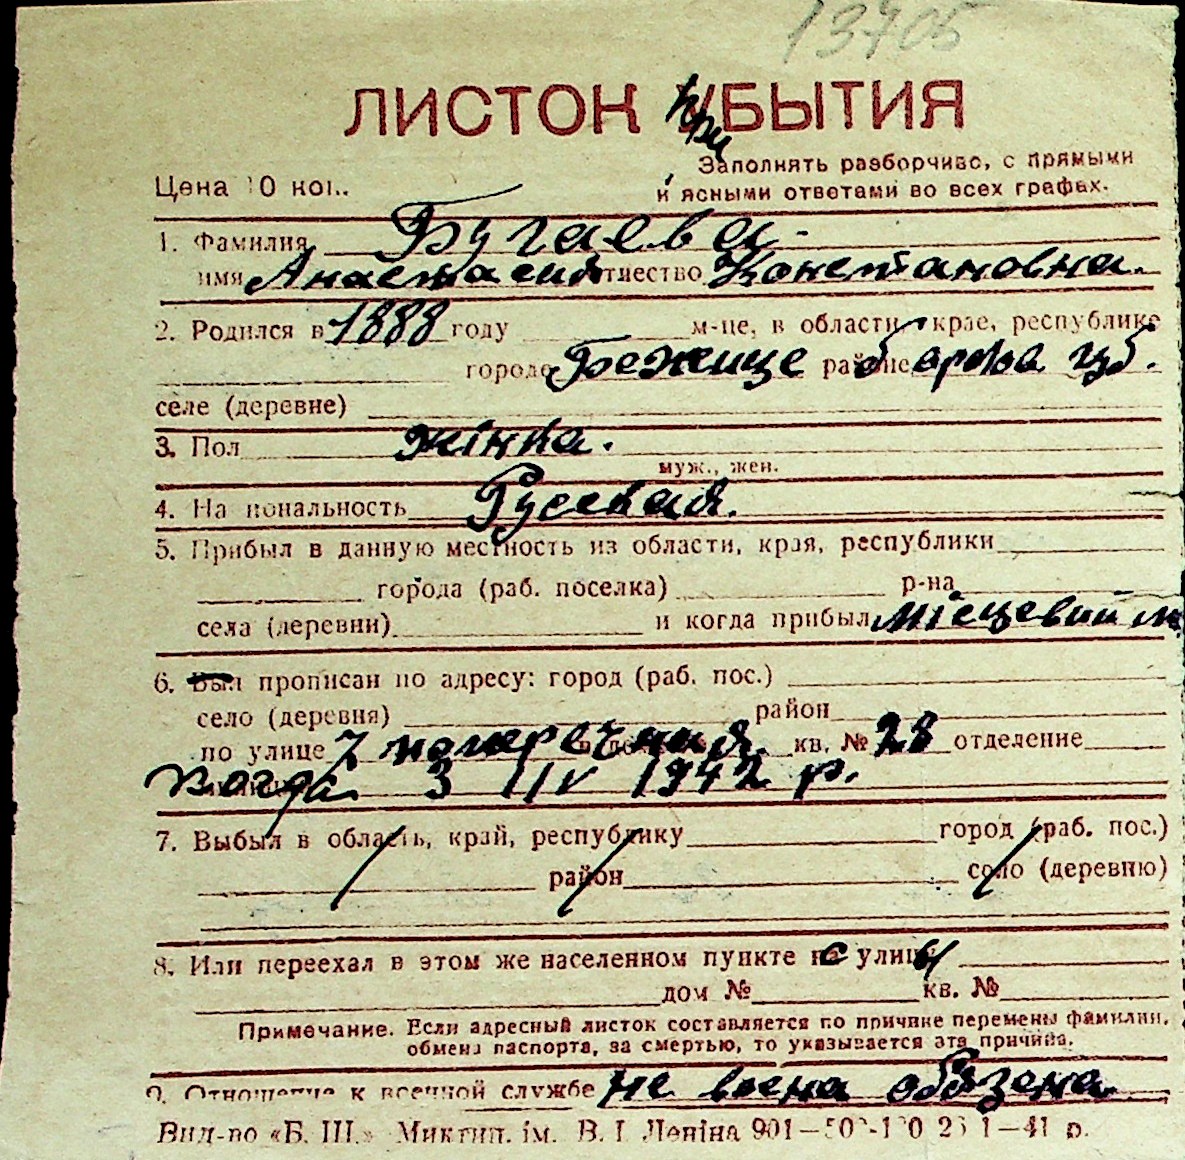 13705
ЛИСТОК прибытия
Заполнять разборчиво, с прямыми
Цена 10 коп. и ясными ответами во всех графах.
1. Фамилия Бугаева.
имя Анастасия отчество Константиновна.
2. Родился в 1888 году м-це, в области, крае, республике
городе Бежице районе
селе (деревне)
3. Пол жінка.
муж., жен.
4. Национальность Русская.
5. Прибыл в данную местность из области, края, республики
города (раб. поселка) р-на
села (деревни) и когда прибыл місцевий
6. Был прописан по адресу: город (раб. пос.)
село (деревня) район
по улице 7 поперечная кв. № 28 отделение
когда 3 IV 1942 р.
7. Выбыл в область, край, республику город (раб. пос.)
район село (деревню)
8. Или переехал в этом же населенном пункте с улицы
дом № кв. №
Примечание. Если адресный листок составляется по причине перемены фамилии,
обмена паспорта, за смертью, то указывается эта причина.
9. Отношение к военной службе не воена обязена
Вид-во «Б. Ш.» Миктип. ім. В. І Леніна 901—50 1—41 р.